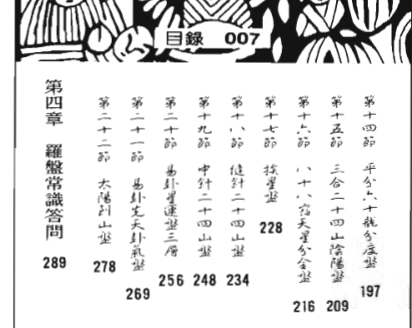 目錄 007
第十四節 平分六十龍分度盤 197
第十五節 三合二十四山陰陽盤 209
第十六節 八十八宿天星分金盤 216
第十七節 挨星盤 228
第十八節 縫針二十四山盤 234
第十九節 中針二十四山盤 248
第二十節 易卦星運盤三層 256
第二十一節 易卦先天卦氣盤 269
第二十二節 太陽到山盤 278
第四章 羅盤常識答問 289